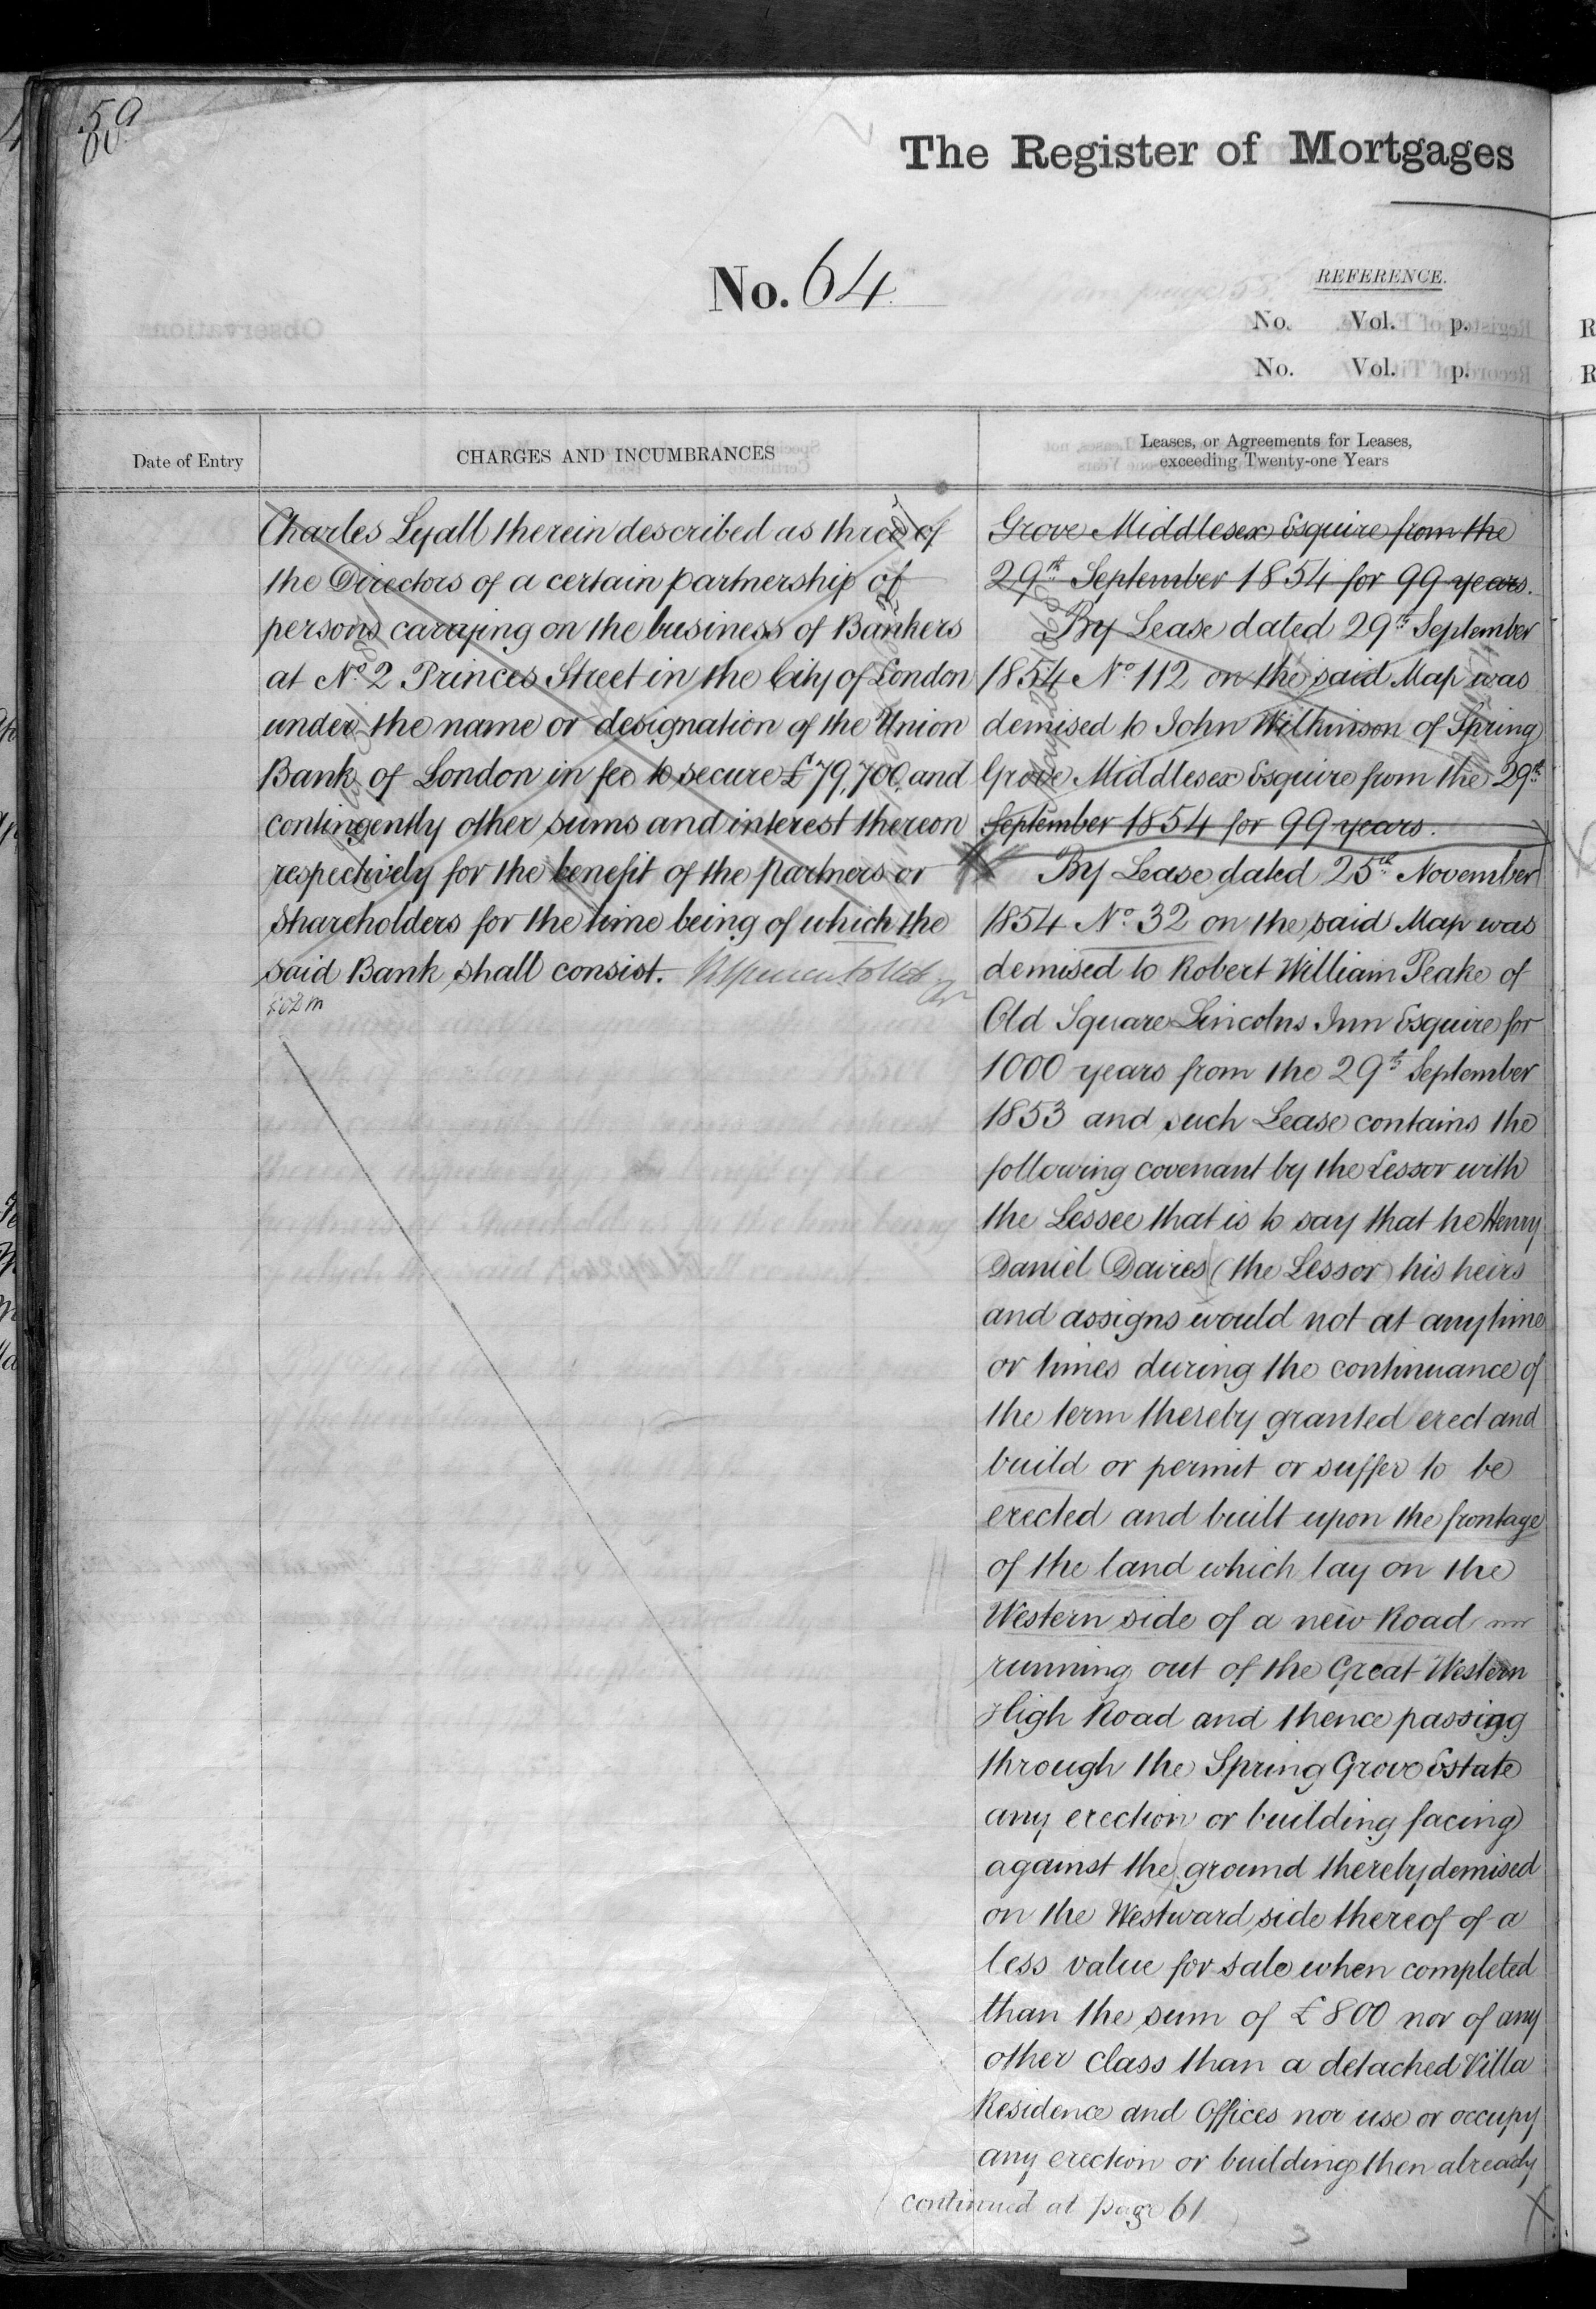 59
The Register of Mortgages
No. 64
REFERENCE.
No. Vol. p.
No. Vol. p.
Date of Entry
CHARGES AND INCUMBRANCES
Leases, or Agreements for Leases,
exceeding Twenty-one Years
Charles Lyall therein described as three of
the Directors of a certain partnership of
persons carrying on the business of Bankers
at No. 2 Princes Street in the City of London
under the name or designation of the Union
Bank of London in fee to secure £79,700, and
contingently other sums and interest thereon
respectively for the benefit of the partners or
Shareholders for the time being of which the
said Bank shall consist.
Grove Middlesex Esquire from the
29th September 1854 for 99 years.
By Lease dated 29th September
1854 No. 112 on the said Map was
demised to John Wilkinson of Spring
Grove Middlesex Esquire from the 29th
September 1854 for 99 years.
By Lease dated 25th November
1854 No. 32 on the said Map was
demised to Robert William Peake of
Old Square Lincolns Inn Esquire for
1000 years from the 29th September
1853 and such Lease contains the
following covenant by the Lessor with
the Lessee that is to say that he Henry
Daniel Davies (the Lessor) his heirs
and assigns would not at anytime
or times during the continuance of
the term thereby granted erect and
build or permit or suffer to be
erected and built upon the frontage
of the land which lay on the
Western side of a new Road
running out of the Great Western
High Road and thence passing
through the Spring Grove Estate
any erection or building facing
against the ground thereby demised
on the Westward side thereof of a
less value for sale when completed
than the sum of £800 nor of any
other class than a detached Villa
Residence and Offices nor use or occupy
any erection or building then already
continued at page 61